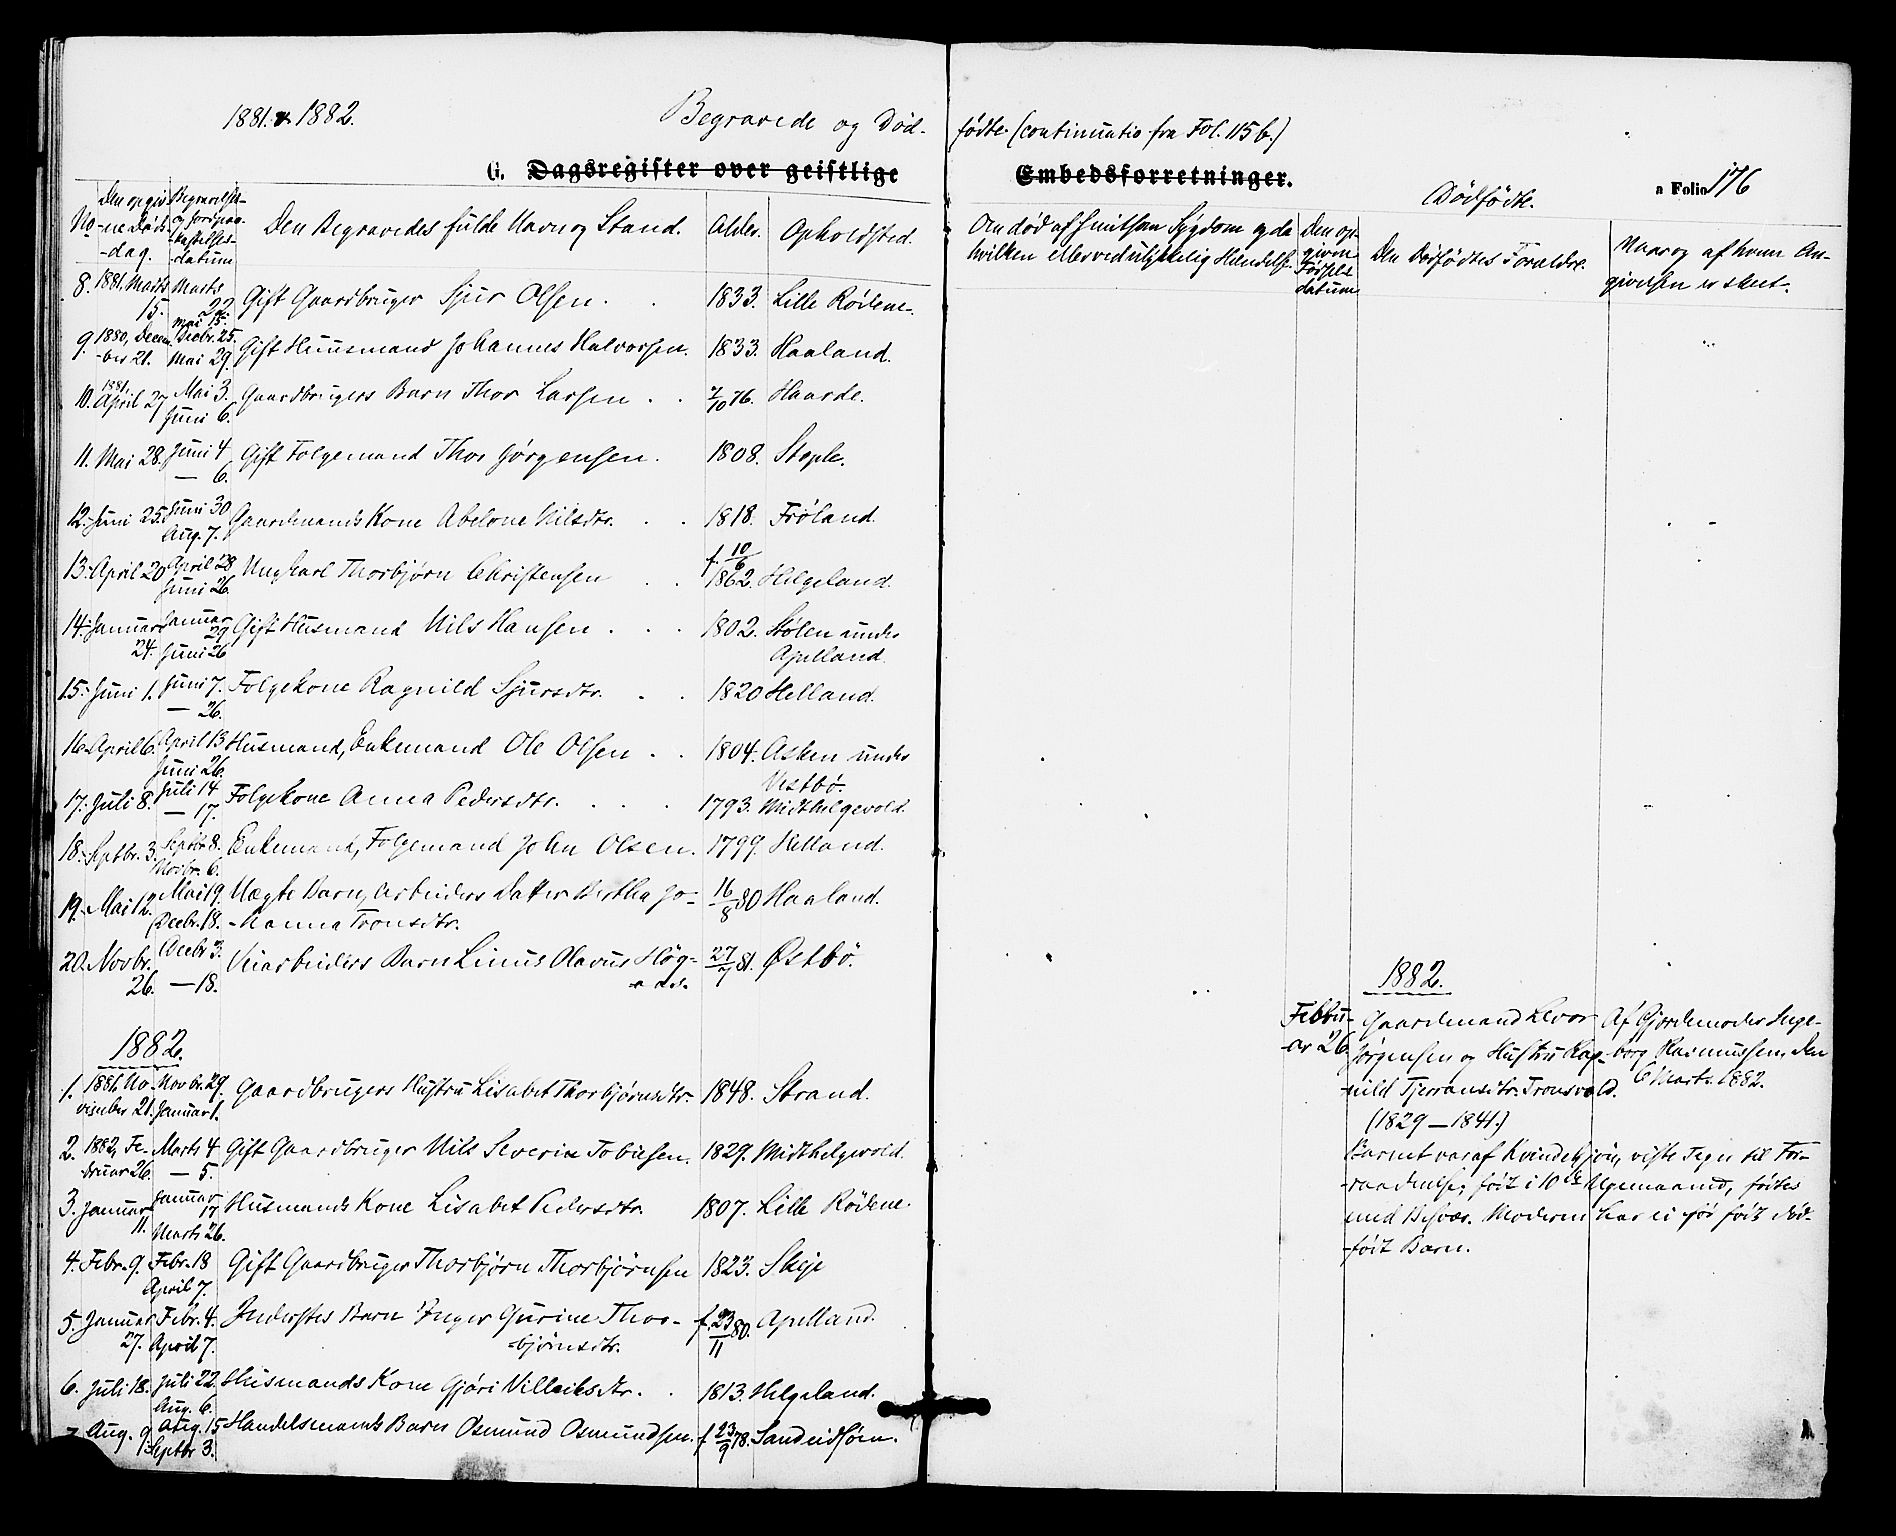 1881. & 1882. Begravede og Død-
fødte. (continuatio fra Fol. 115 b.)
G. Dagsregister over geistlige Embedsforretninger.
a Folio 176
No
Den opgiv-
-ne Døds-
-dag.
Begravelses-
og Jordpaa-
kastelses-
-datum
Den Begravedes fulde Navn og Stand.
Alder.
Opholdsted.
Om død af smitsom Sygdom og da
hvilken eller ved ulykkelig Hændelse.
Dødfødte.
Den op-
given
Fødsels-
datum
Den Dødfødtes Forældre.
Naar og af hvem An-
givelsen er skeet.
8. 1881. Marts 15. Marts 22. Mai 15. Gift Gaardbruger Sjur Olsen. 1833. Lille Rödene.
9. 1880, Decem-
-ber 21. Decbr. 25. Mai 29. Gift Huusmand Johannes Halvorsen. 1833. Haaland.
10. 1881. April 27 Mai 3. Juni 6. Gaardbrugers Barn Thor Larsen. 2/10 76. Haarde.
11. Mai 28. Juni 4 — 6. Gift Folgemand Thor Jørgensen. 1808. Stople.
12. Juni 25. Juni 30 Aug. 7. Gaardmands Kone Abelone Nilsdtr. 1818. Frøland.
13. April 20 April 28 Juni 26. Ungkarl Thorbjørn Christensen f. 10/6 1862. Helgeland.
14. Januar 24. Januar 29 Juni 26 Gift Husmand Nils Hansen. 1802. Stølen under
Apelland.
15. Juni 1. Juni 7. — 26. Folgekone Ragnild Sjursdtr. 1820 Helland.
16. April 6. April 13 Juni 26. Husmand, Enkemand Ole Olsen. 1804. Asken under
Vestbø.
17. Juli 8. Juli 14 — 17. Folgekone Anna Pedersdtr. 1793. Midthelgevold.
18. Septbr. 3. Septbr 8. Novbr. 6. Enkemand, Folgemand John Olsen. 1799. Helland.
19. Mai 12. Mai 19. Decbr. 18. Uægte Barn, Arbeiders Datter Bertha Jo-
-hanna Tronsdtr. 16/8 80 Haaland.
20. Novbr. 26. Decbr 3. — 18. Veiarbeiders Barn Linus Olavus Høg-
27/7 81. Østbö.
1882.
1. 1881. No-
vember 21. Novbr. 29. Januar 1. Gaardbrugers Hustru Lisabet Thorbjørnsdtr. 1848. Strand.
2. 1882, Fe-
bruar 26. Marts 4 — 5. Gift Gaardbruger Nils Severin Tobiesen. 1829. Midthelgevold.
3. Januar 11. Januar 17 Marts 26. Husmands Kone Lisabet Pedersdtr. 1807. Lille Rödene.
4. Febr. 9. Febr. 18 April 7. Gift Gaardbruger Thorbjørn Thorbjørnsen 1823. Skeje
5. Januar 27. Febr. 4. April 7. Inderstes Barn Inger Gurine Thor-
-bjørnsdtr. f. 23/11 80. Apelland.
6. Juli 18. Juli 22. Aug. 6. Husmands Kone Gjøri Villeiksdtr. 1813. Helgeland.
7. Aug. 9. Aug. 15 Septbr 3. Handelsmands Barn Osmund Osmundsen. f. 23/9 78. Sandeidsøen.
1882.
Febru-
-ar 26. Gaardmand Levor
Jørgensen og Hustru Rag-
-nild Tjerransdtr. Tronsvold.
(1829 — 1841.)
Af Gjordemoder Inge-
-borg Rasmussen, den
6 Marts 1882.
Barnet var af Kvindekjøn, viste Tegn til For-
-raadnelse; födt i 10de Ugemaaned, födtes
med Besvær. Moderen har ei för födt död-
-födt Barn.